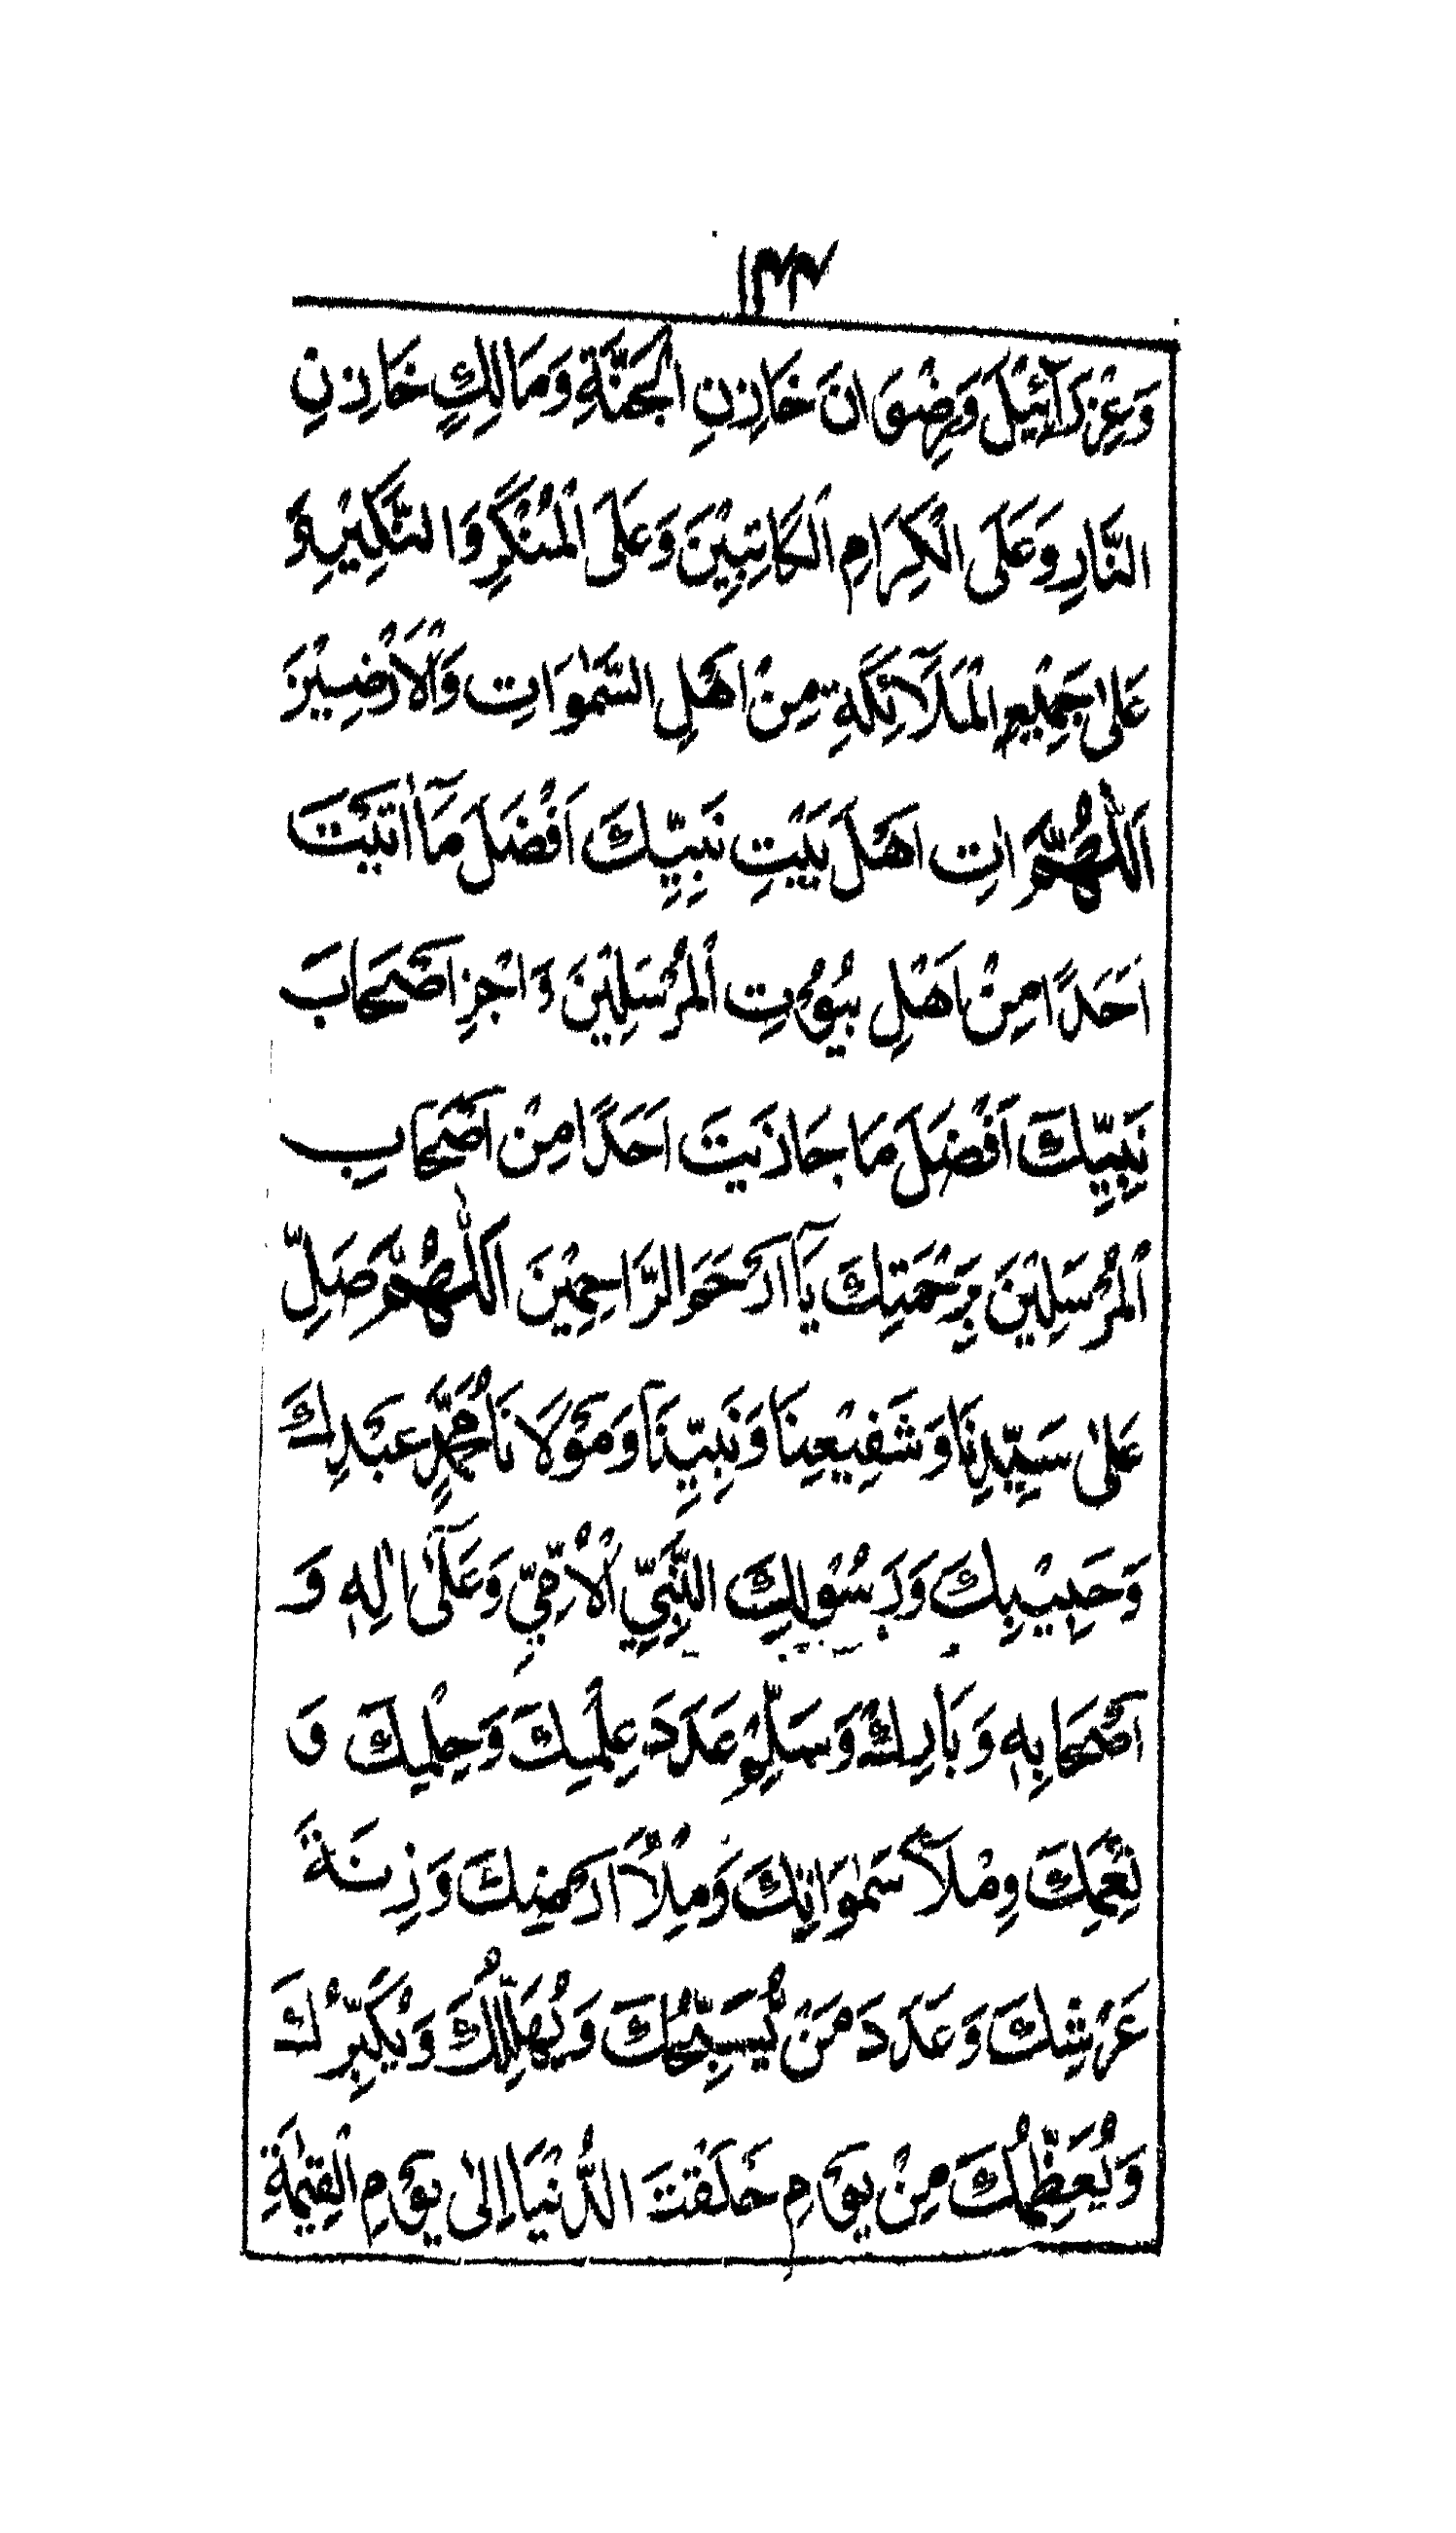 ١٣٣
وَعِزْرَآئِيْلَ وَرِضْوَانَ خَازِنِ الْجَنَّةِ وَمَالِكٍ خَازِنِ
النَّارِ وَعَلَى الْكِرَامِ الْكَاتِبِيْنَ وَعَلَى الْمُنْكَرِ وَالنَّكِيْرِ وَ
عَلٰى جَمِيْعِ الْمَلَآئِكَةِ مِنْ اَهْلِ السَّمٰوَاتِ وَالْاَرْضِيْنَ
اَللّٰهُمَّ اٰتِ اَهْلَ بَيْتِ نَبِيِّكَ اَفْضَلَ مَآ اٰتَيْتَ
اَحَدًا مِنْ اَهْلِ بُيُوْتِ الْمُرْسَلِيْنَ وَاجْزِ اَصْحَابَ
نَبِيِّكَ اَفْضَلَ مَا جَازَيْتَ اَحَدًا مِنْ اَصْحَابِ
الْمُرْسَلِيْنَ بِرَحْمَتِكَ يَآ اَرْحَمَ الرَّاحِمِيْنَ اَللّٰهُمَّ صَلِّ
عَلٰى سَيِّدِنَا وَشَفِيْعِنَا وَنَبِيِّنَا وَمَوْلَانَا مُحَمَّدٍ عَبْدِكَ
وَحَبِيْبِكَ وَرَسُوْلِكَ النَّبِيِّ الْاُمِّيِّ وَعَلٰٓى اٰلِهٖ وَ
اَصْحَابِهٖ وَبَارِكْ وَسَلِّمْ عَدَدَ عِلْمِكَ وَحِلْمِكَ وَ
نِعَمِكَ وَمِلْأَ سَمٰوَاتِكَ وَمِلْأَ اَرْضِكَ وَزِنَةَ
عَرْشِكَ وَعَدَدَ مَنْ يُسَبِّحُكَ وَيُهَلِّلُكَ وَيُكَبِّرُكَ
وَيُعَظِّمُكَ مِنْ يَوْمِ خَلَقْتَ الدُّنْيَا اِلٰى يَوْمِ الْقِيٰمَةِ